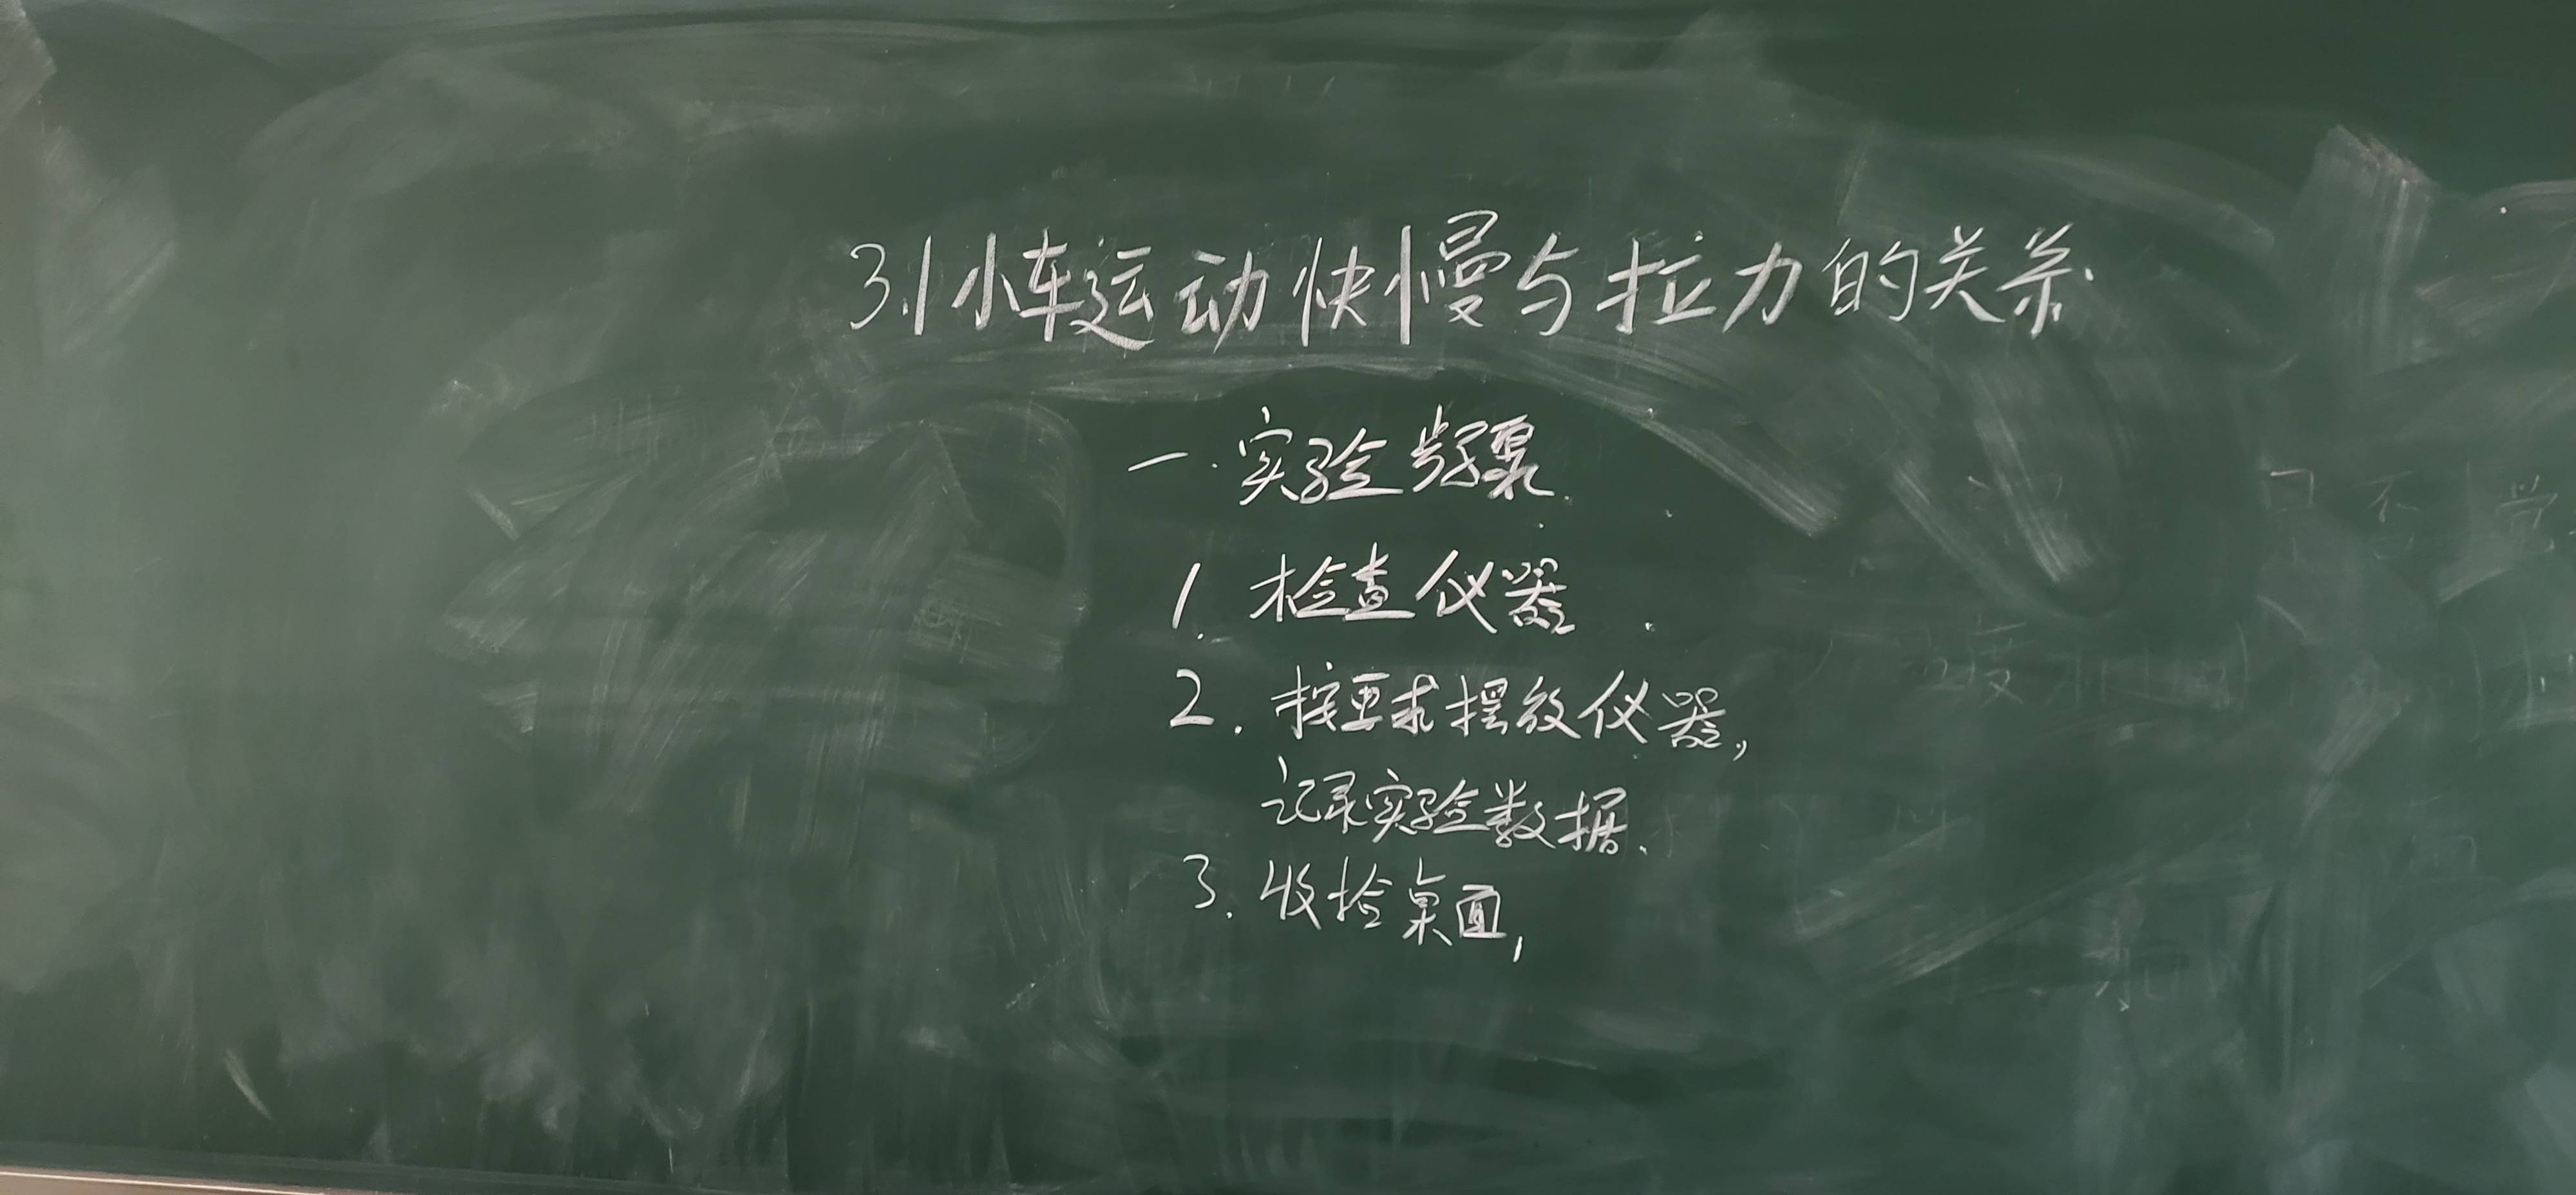 3.1小车运动快慢与拉力的关系
一.实验步骤
1.检查仪器.
2.按要求摆放仪器,
记录实验数据.
3.收捡桌面,